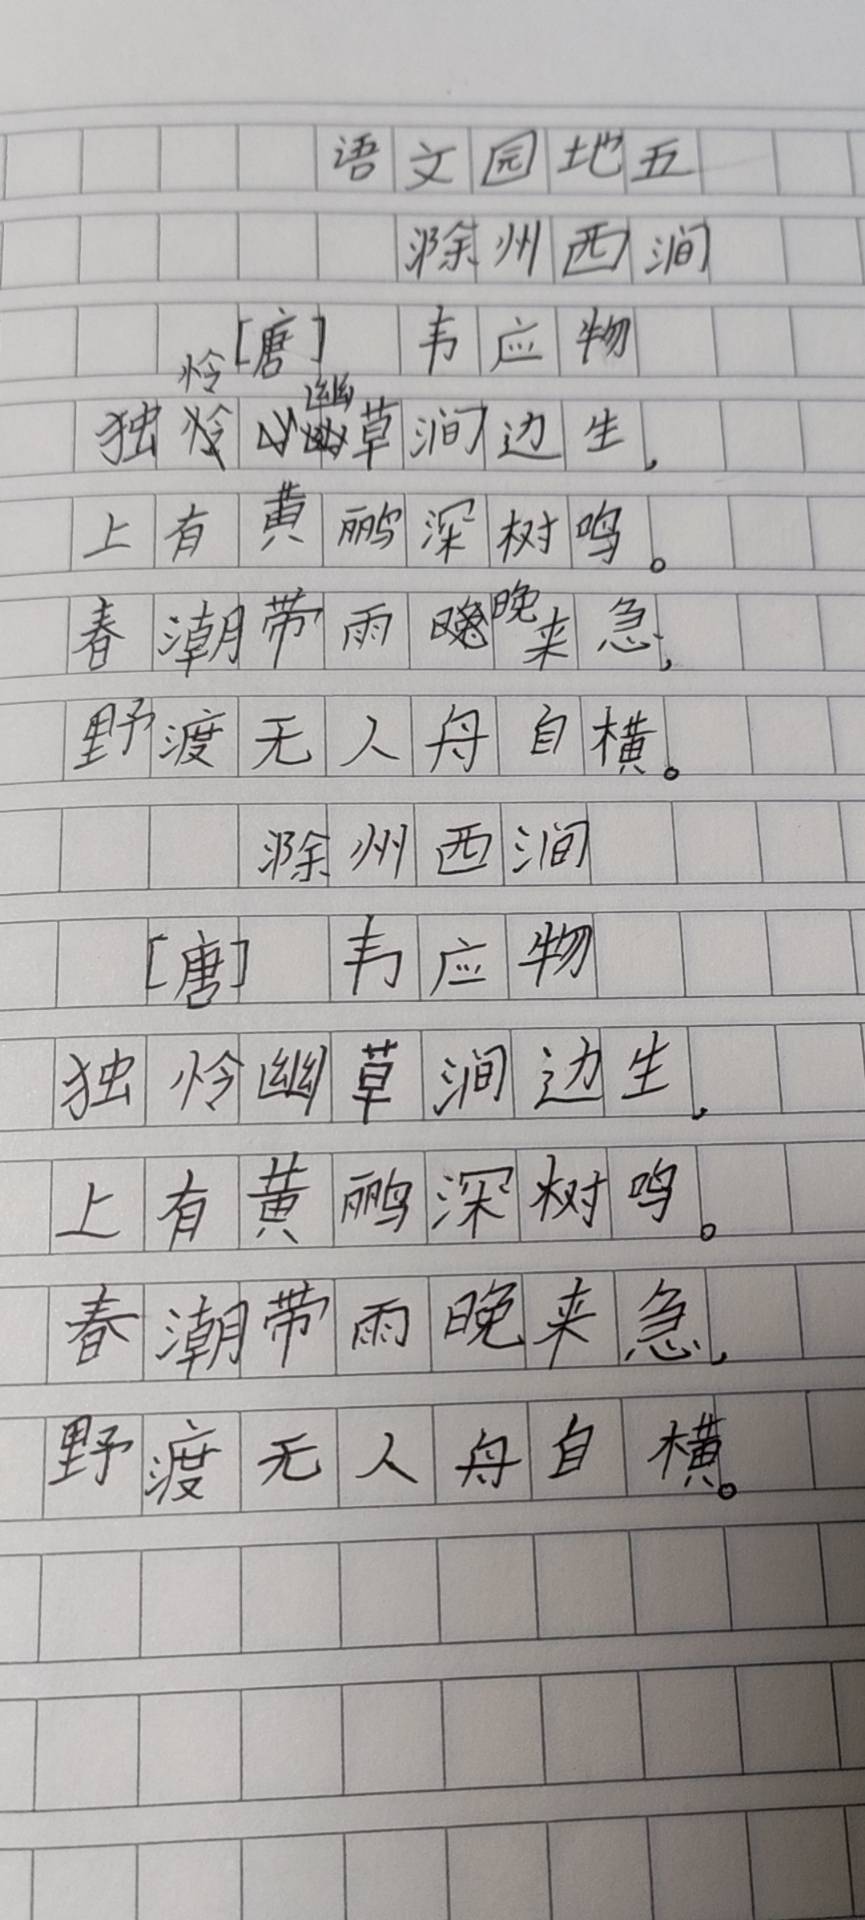 语文园地五
滁州西涧
[唐] 韦应物
独怜幽草涧边生，
上有黄鹂深树鸣。
春潮带雨晚来急，
野渡无人舟自横。
滁州西涧
[唐] 韦应物
独怜幽草涧边生，
上有黄鹂深树鸣。
春潮带雨晚来急，
野渡无人舟自横。